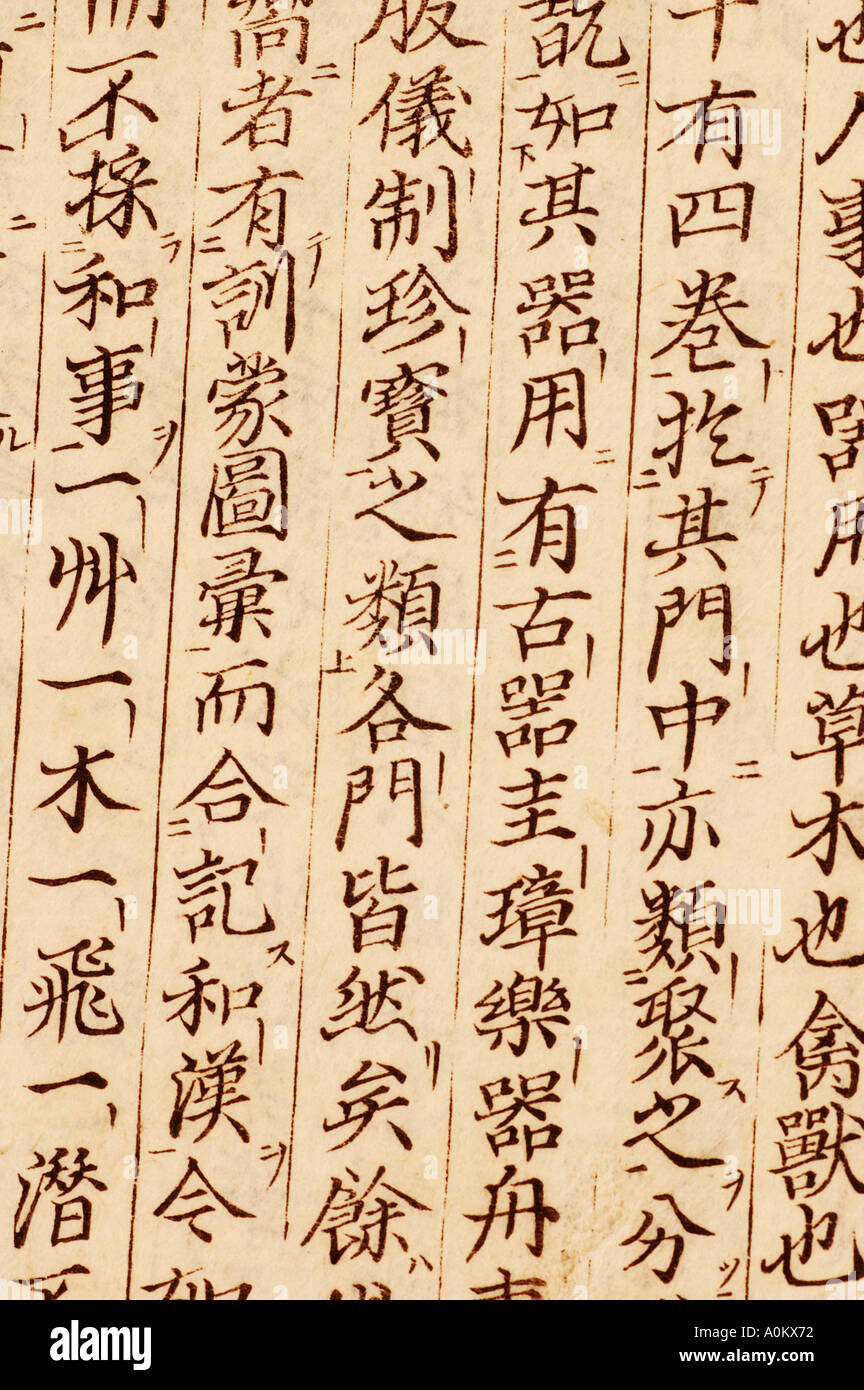 也人事也器用也草木也禽獸也
十有四卷於其門中亦類聚之分
甑如其器用有古器圭璋樂器舟
服儀制珍寶之類各門皆然矣餘
嚮者有訓蒙圖彙而合記和漢今
而不採和事一艸一木一飛一潛
alamy
Image ID: A0KX72
www.alamy.com